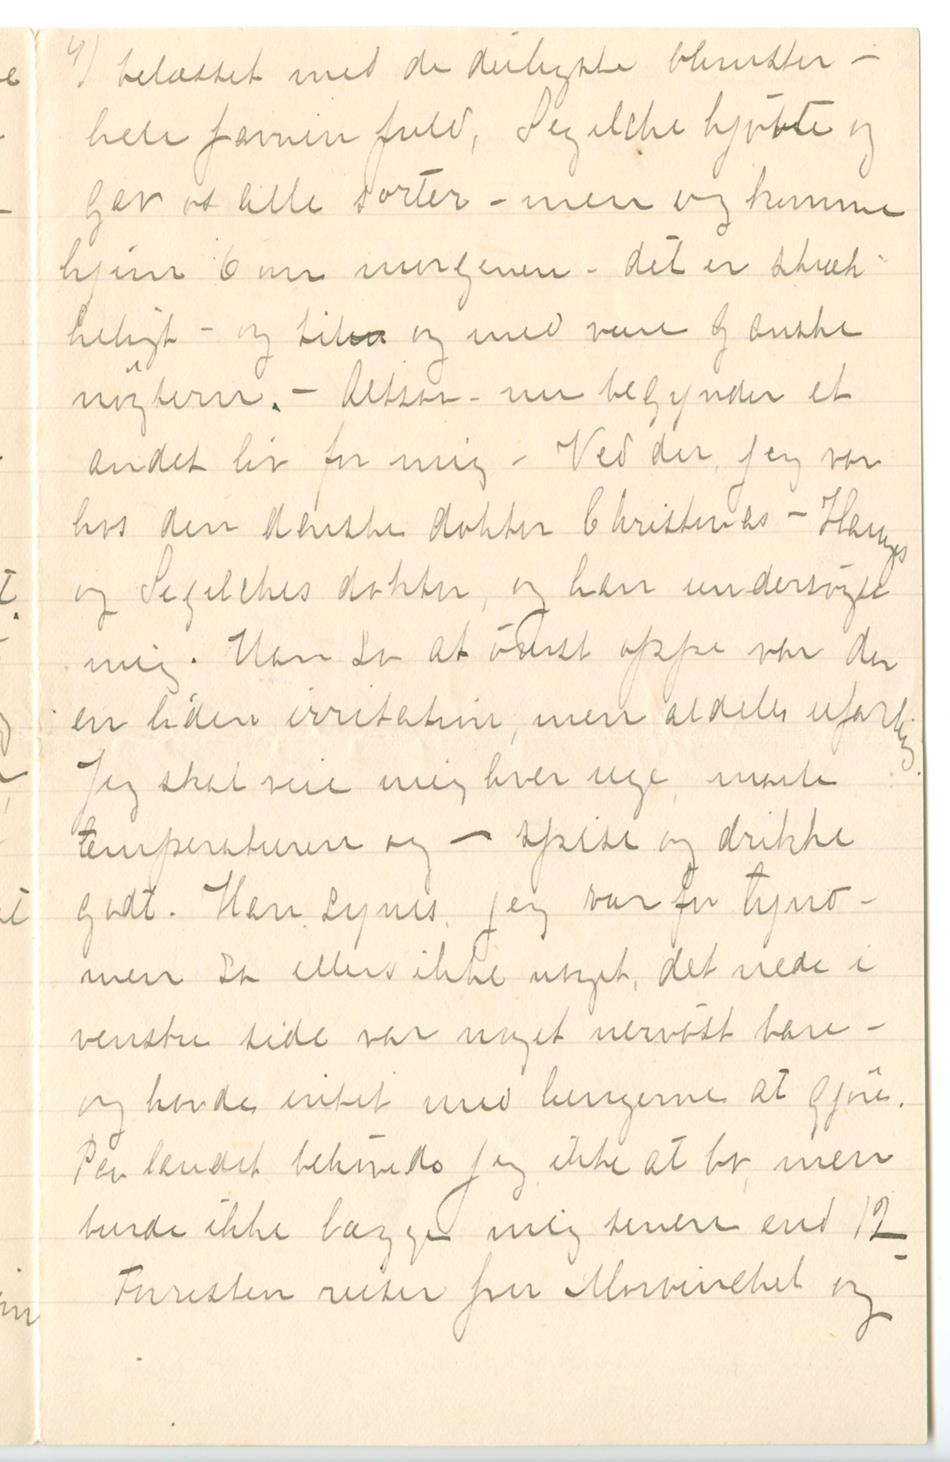 4) belæsset med de deiligste blomster –
hele favnen fuld, Segelche kjøbte og
gav os alle sorter – men og komme
hjem 6 om morgenen – det er skræk-
keligt – og og med være ganske
nøgtern. – Altsaa – nu begynder et
andet liv for mig – Ved du, jeg var
hos den danske doktor Christmas – Hauges
og Segelckes doktor, og han undersøgte
mig. Han sa at øverst oppe var der
en liden irritation, men aldeles ufarlig.
Jeg skal veie mig hver uge, maale
temperaturen og – spise og drikke
godt. Han synes, jeg var for tynd –
men sa ellers ikke noget, det nede i
venstre side var noget nervøst bare –
og havde intet med lungerne at gjøre.
Paa landet behøvede jeg ikke at bo, men
burde ikke lægge mig senere end 12
Forresten reiser fru og